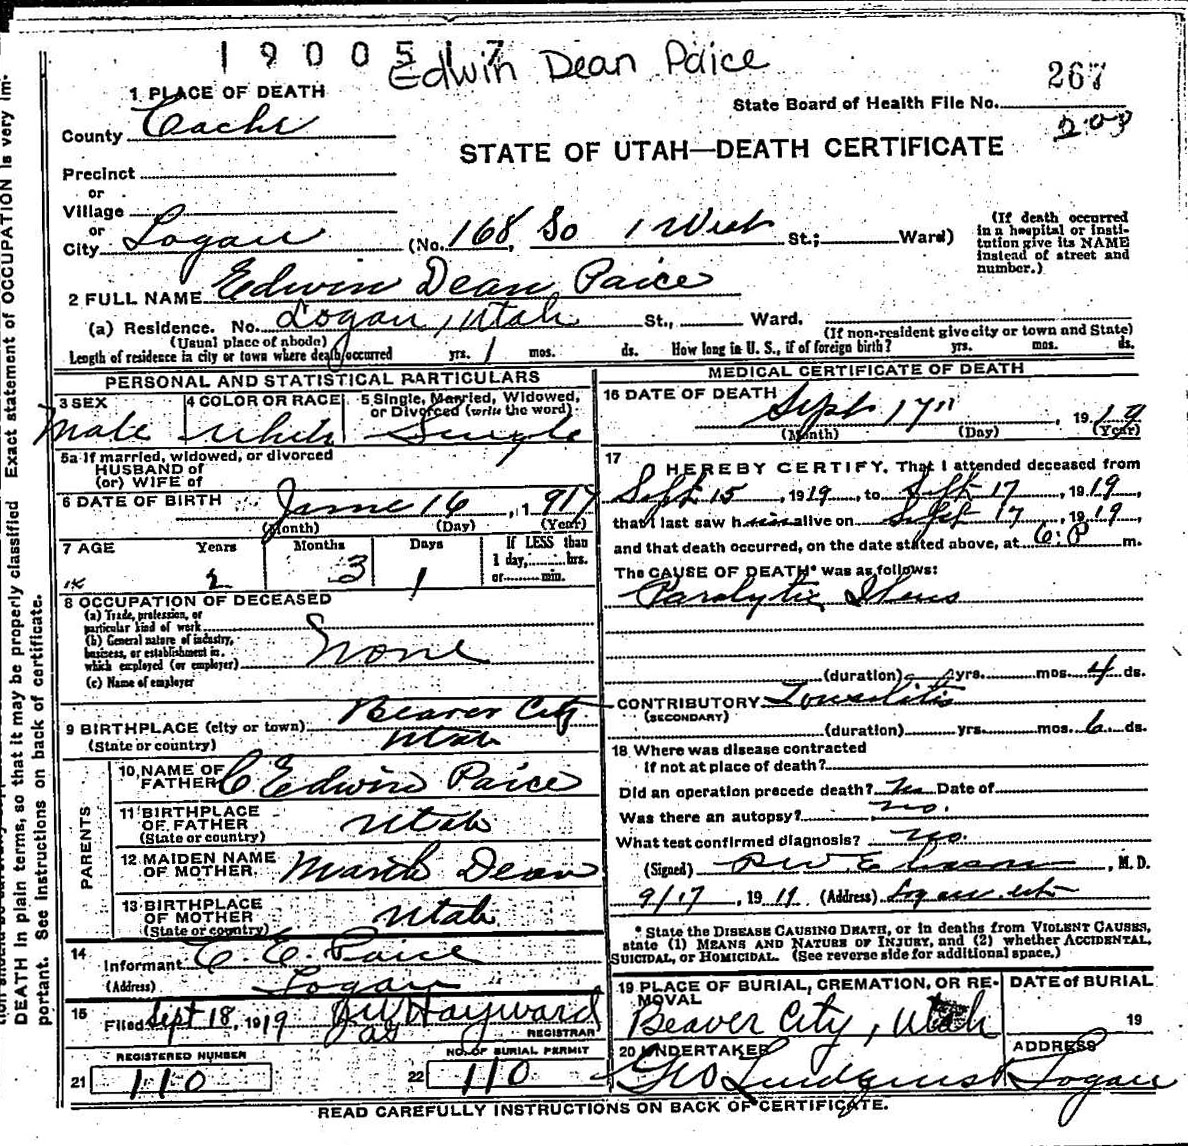 1900517
Edwin Dean Paice
267
State Board of Health File No.
203
1 PLACE OF DEATH
County Cache
STATE OF UTAH—DEATH CERTIFICATE
Precinct
or
Village
or
City Logan (No. 168 So 1 West St.; Ward)
(If death occurred in a hospital or institution give its NAME instead of street and number.)
2 FULL NAME Edwin Dean Paice
(a) Residence. No. Logan, Utah St., Ward.
(Usual place of abode) (If non-resident give city or town and State)
Length of residence in city or town where death occurred yrs. 1 mos. ds. How long in U. S., if of foreign birth? yrs. mos. ds.
PERSONAL AND STATISTICAL PARTICULARS
3 SEX Male
4 COLOR OR RACE White
5 Single, Married, Widowed, or Divorced (write the word) Single
5a If married, widowed, or divorced
HUSBAND of
(or) WIFE of
6 DATE OF BIRTH June 16, 1917
(Month) (Day) (Year)
7 AGE Years Months Days If LESS than
1 day, hrs.
or min.
2 3 1
8 OCCUPATION OF DECEASED
(a) Trade, profession, or
particular kind of work
(b) General nature of industry,
business, or establishment in
which employed (or employer)
None
(c) Name of employer
9 BIRTHPLACE (city or town) Beaver City
(State or country) Utah
PARENTS
10 NAME OF FATHER C Edwin Paice
11 BIRTHPLACE OF FATHER Utah
(State or country)
12 MAIDEN NAME OF MOTHER Dean
13 BIRTHPLACE OF MOTHER Utah
(State or country)
14 Informant C. E. Paice
(Address) Logan
15 Filed Sept 18, 1919 Hayward
REGISTRAR
REGISTERED NUMBER
21 110
NO. OF BURIAL PERMIT
22 110
MEDICAL CERTIFICATE OF DEATH
16 DATE OF DEATH
Sept 17", 1919
(Month) (Day) (Year)
17
I HEREBY CERTIFY, That I attended deceased from
Sept 15, 1919, to Sept 17, 1919,
that I last saw him alive on Sept 17, 1919,
and that death occurred, on the date stated above, at 6:P m.
The CAUSE OF DEATH* was as follows:
Paralytic Ileus
(duration) yrs. mos. 4 ds.
CONTRIBUTORY Tonsilitis
(SECONDARY)
(duration) yrs. mos. 6 ds.
18 Where was disease contracted
if not at place of death?
Did an operation precede death? No Date of
Was there an autopsy? no.
What test confirmed diagnosis? no.
(Signed) , M. D.
9/17, 1919 (Address) Logan Utah
* State the DISEASE CAUSING DEATH, or in deaths from VIOLENT CAUSES,
state (1) MEANS AND NATURE OF INJURY, and (2) whether ACCIDENTAL,
SUICIDAL, or HOMICIDAL. (See reverse side for additional space.)
19 PLACE OF BURIAL, CREMATION, OR REMOVAL
Beaver City, Utah
DATE of BURIAL
19
20 UNDERTAKER
Geo Lindquist
ADDRESS
Logan
READ CAREFULLY INSTRUCTIONS ON BACK OF CERTIFICATE.
DEATH in plain terms, so that it may be properly classified Exact statement of OCCUPATION is very im-
portant. See instructions on back of certificate.